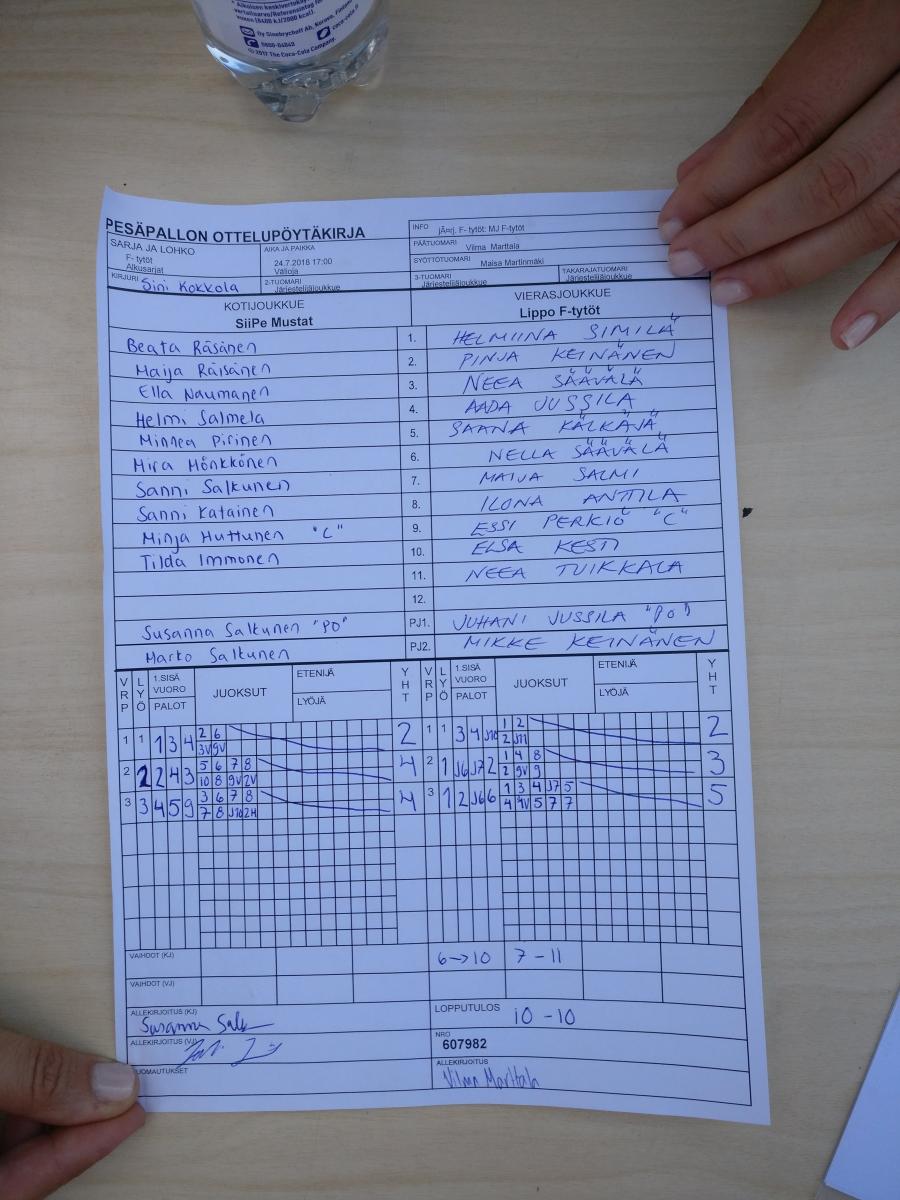 Alkoisen keskivertokäy
vertailuarvo/Referensintag för
vuxen (8400 kJ/2000 kcal).
Oy Sinebrychoff Ab, Kerava, Finland
0800-04040
coca-cola.fi
© 2017 The Coca-Cola Company.
PESÄPALLON OTTELUPÖYTÄKIRJA
INFO jÃ¤rj. F- tytöt: MJ F-tytöt
SARJA JA LOHKO
F- tytöt
Alkusarjat
AIKA JA PAIKKA
24.7.2018 17:00
Välioja
PÄÄTUOMARI Vilma Marttala
SYÖTTÖTUOMARI Maisa Martinmäki
KIRJURI Sini Kokkola
2-TUOMARI
Järjestelijäjoukkue
3-TUOMARI
Järjestelijäjoukkue
TAKARAJATUOMARI
Järjestelijäjoukkue
KOTIJOUKKUE
SiiPe Mustat
VIERASJOUKKUE
Lippo F-tytöt
Beata Räsänen 1. HELMIINA SIMILÄ
Maija Räisänen 2. PINJA KEINÄNEN
Ella Naumanen 3. NEEA SÄÄVÄLÄ
Helmi Salmela 4. AADA JUSSILA
Minnea Pirinen 5. SAANA KÄLKÄJÄ
Mira Mönkkönen 6. NELLA SÄÄVÄLÄ
Sanni Salkunen 7. MAIJA SALMI
Sanni Katainen 8. ILONA ANTTILA
Minja Huttunen "C" 9. ESSI PERKIÖ "C"
Tilda Immonen 10. ELSA KESTI
11. NEEA TUIKKALA
12.
Susanna Salkunen "PO" PJ1. JUHANI JUSSILA "PO"
Marko Salkunen PJ2. MIKKE KEINÄNEN
VRP LYÖ 1.SISÄ VUORO PALOT JUOKSUT ETENIJÄ LYÖJÄ YHT VRP LYÖ 1.SISÄ VUORO PALOT JUOKSUT ETENIJÄ LYÖJÄ YHT
1 1 1 3 4 2 6 2 1 1 3 4 J10 1 2 2
3V 9V 2 J11
2 2 2 4 3 5 6 7 8 4 2 1 J6 J7 2 1 4 8 3
10 8 9V 2V 2 9V 9
3 3 4 5 9 3 6 7 8 4 3 1 2 J6 6 1 3 4 J7 5 5
7 8 J10 2H 4 4V 5 7 7
VAIHDOT (KJ) 6→10 7 - 11
VAIHDOT (VJ)
ALLEKIRJOITUS (KJ)
LOPPUTULOS 10 - 10
ALLEKIRJOITUS (VJ)
NRO
607982
HUOMAUTUKSET
ALLEKIRJOITUS
Vilma Marttala